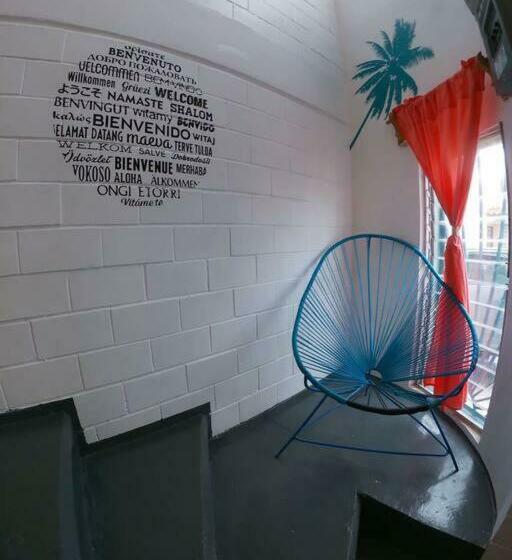 BENVENUTO
ДОБРО ПОЖАЛОВАТЬ
UELCOMMEN BEMVINDO
Willkommen Grüezi WELCOME
ようこそ NAMASTE SHALOM
BENVINGUT witamy BENVIDO
καλώς BIENVENIDO WITAJ
SELAMAT DATANG maeva TERVE TULDA
WELKOM SALVE Dobrodošli
Üdvözlet BIENVENUE MERHABA
VOKOSO ALOHA ALKOMMEN
ONGI ETORRI
Vítáme tě